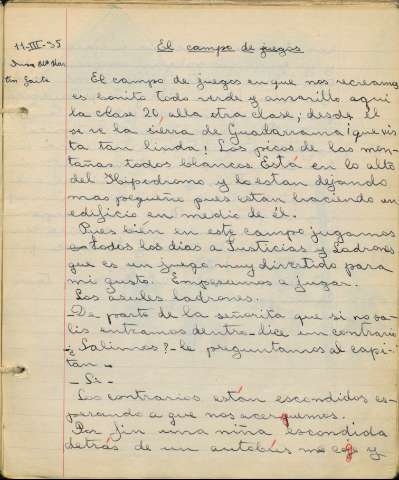 11-III-35
Ana Mª Mar
tín Gaite
El campo de juegos
El campo de juegos en que nos recreamos
es bonito todo verde y amarillo aquí
la clase 20, alla otra clase; desde él
se ve la sierra de Guadarrama ¡que vis
ta tan linda! Los picos de las mon-
tañas todos blancos. Está en lo alto
del Hipódromo y lo estan dejando
mas pequeño pues estan haciendo un
edificio en medio de él.
Pues bien en este campo jugamos
todos los dias a Justicias y Ladrones
que es un juego muy divertido para
mi gusto. Empezamos a jugar.
Los azules ladrones.
-De parte de la señorita que si no sa-
lis entramos dentro-dice un contrario
-¿Salimos?-le preguntamos al capi-
tán-
-Si-
Los contrarios están escondidos es-
perando a que nos acerquemos.
Por fin una niña escondida
detrás de un autobús me coje y